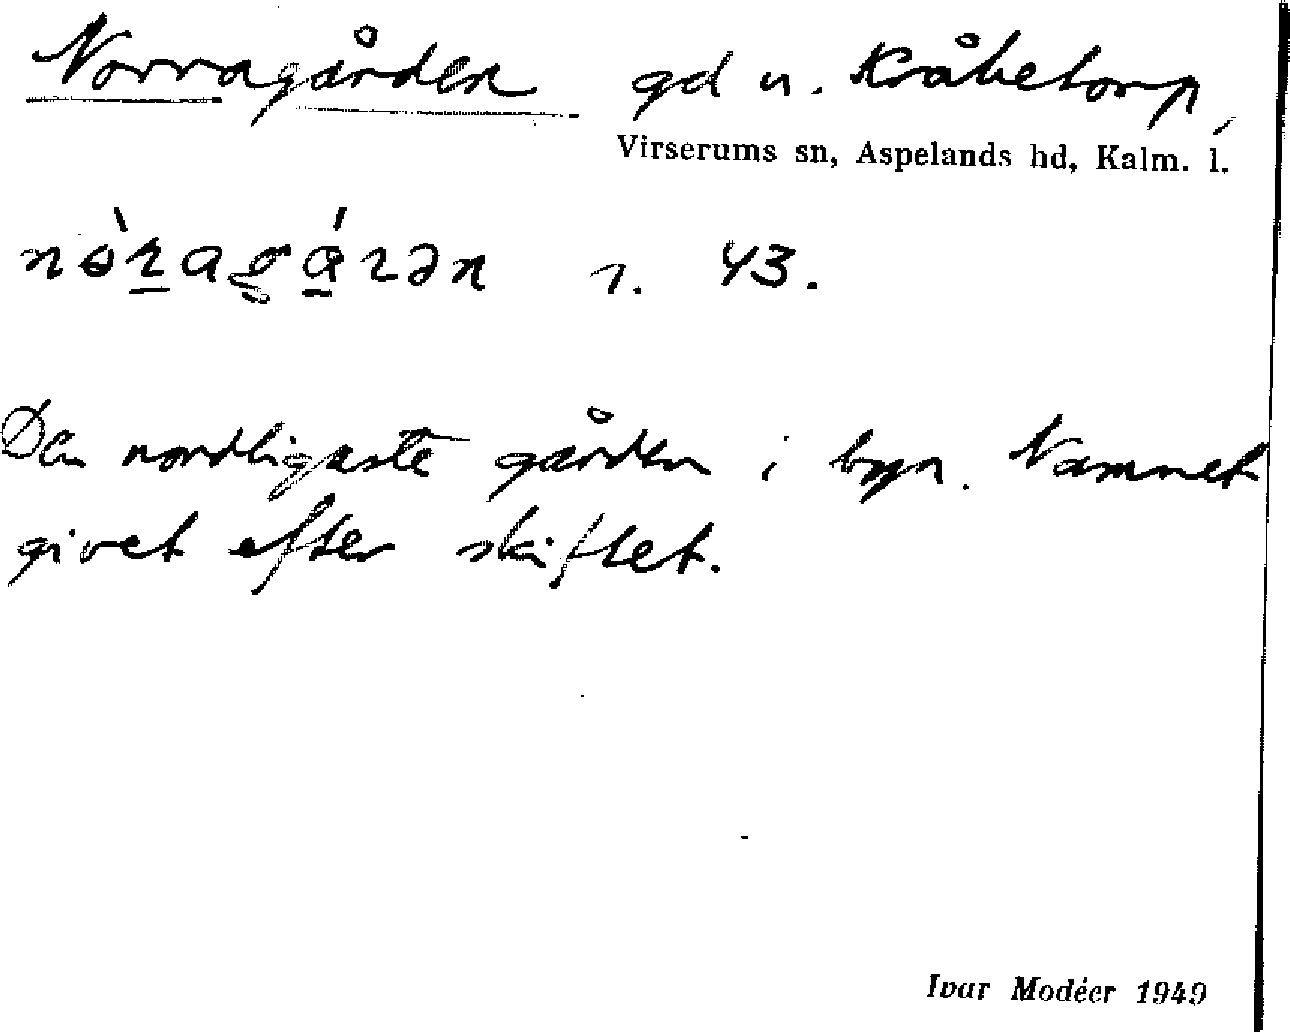 Norragården gd u. Kråketorp,
Virserums sn, Aspelands hd, Kalm. l.
r. 43.
Den nordligaste gården i byn. Namnet
givet efter skiftet.
Ivar Modéer 1949